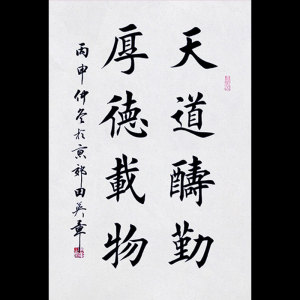 天道醻勤
厚德載物
丙申仲冬於京郊田英章